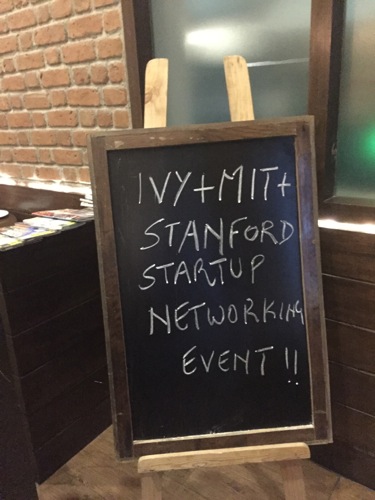 IVY+MIT+
STANFORD
STARTUP
NETWORKING
EVENT !!